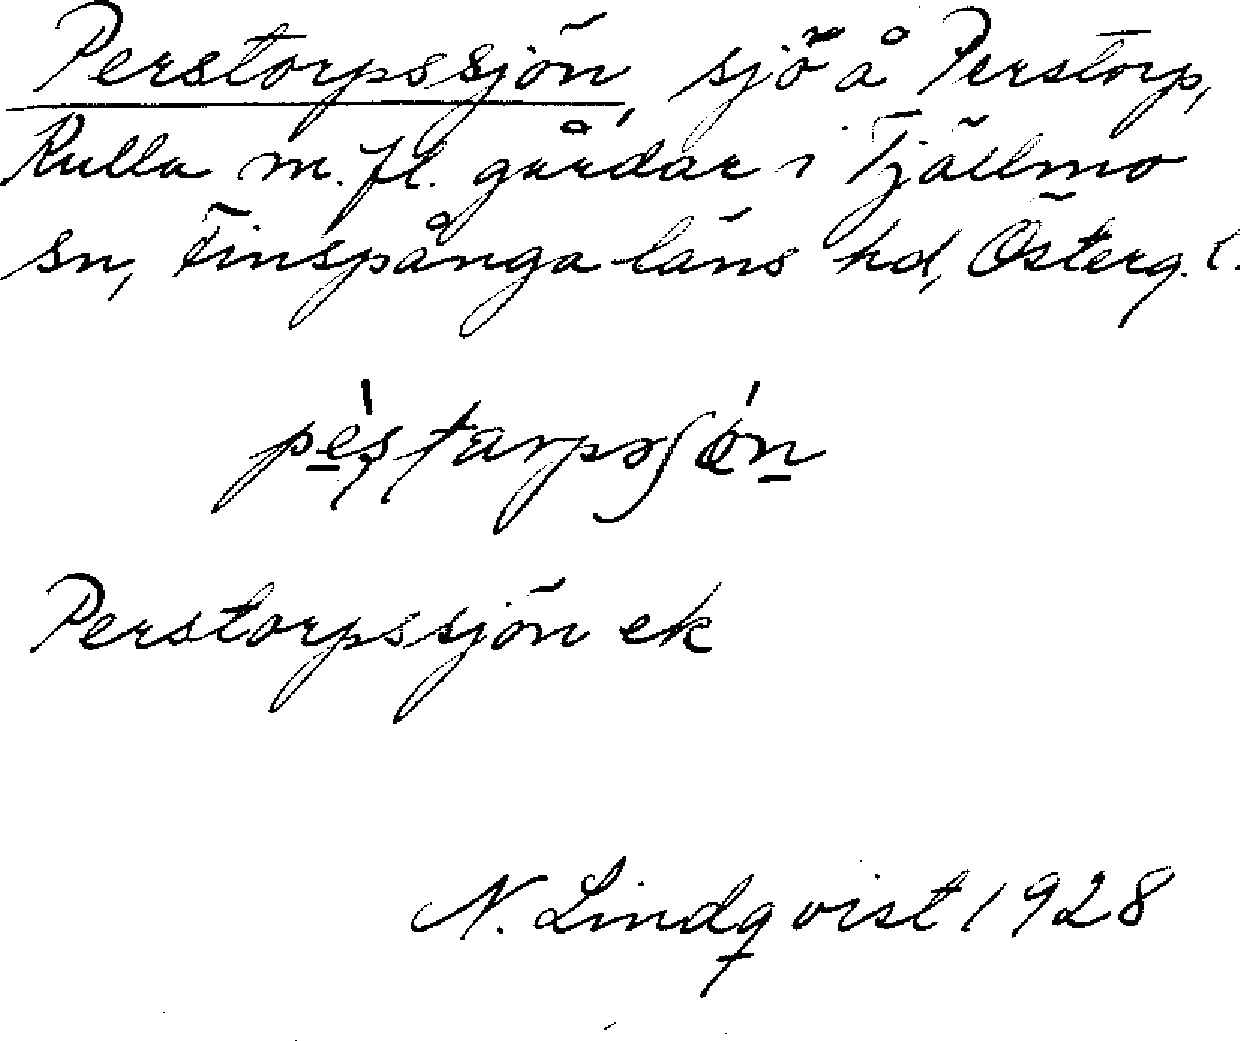 Perstorpssjön, sjö å Perstorp,
Rulla m. fl. gårdar i Tjällmo
sn, Finspånga läns hd, Österg. l.
Perstorpssjön ek
N. Lindqvist 1928